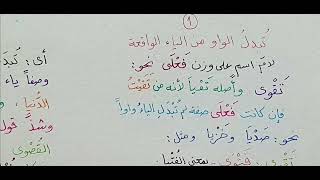 ①
تُبدلُ الواو من الياء الواقعة
لامَ اسمٍ على وزن فَعْلَى نحو:
تَقْوَى وأصله تَقْيا لأنه من تَقَيْتُ
فإن كانت فَعْلَى صفة لم تُبدَلِ الياءُ واواً
نحو: صَدْيَا وخَزْيا ومثل:
تَقْوَى: فَتْوَى بمعنى الفُتْيا
أي: تُبدَ
وصفاً ياء
الدُّنيا
وشذَّ قول
القُصْوَى